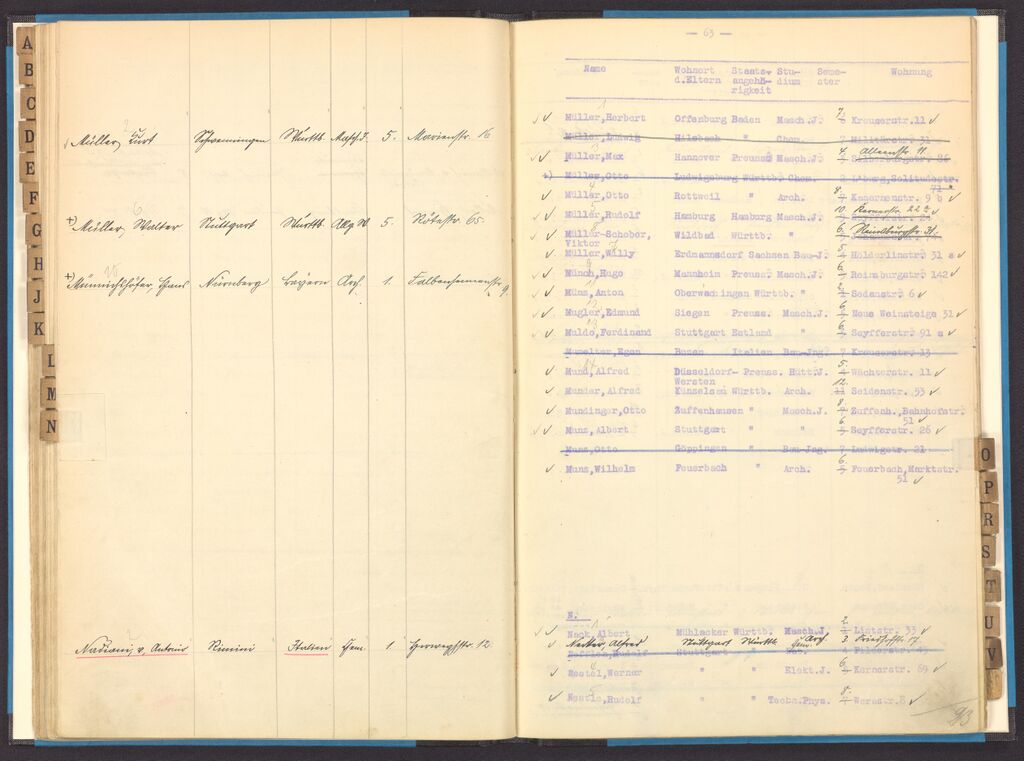 A
B
C
D
E
F
G
H
J
K
L
M
N
Müller, Kurt Schwenningen Württb. Masch.J. 5. Marienstr. 16
+) Müller, Walter Stuttgart Württb. Allg W 5 Rötestr. 65
+) Münnichshöfer, Hans Nürnberg Bayern Arch. 1. Falkenheimerstr. 9.
Nadiani, v. Antonio Rimini Italien Chem. 1 Herwegstr. 12
— 63 —
Name Wohnort Staats- Stu- Seme- Wohnung
d.Eltern angehö- dium ster
rigkeit
Müller,Herbert Offenburg Baden Masch.J. 7 Kreuserstr.11
Müller,Ludwig Hülsbach " Chem. 7 Militärstr. 31
Müller,Max Hannover Preuss Masch.J. 4. Alleenstr. 11
Müller,Otto Ludwigsburg Württb. Chem. 2 L'burg,Solitudestr.
71
Müller,Otto Rottweil " Arch. 8. Kasernenstr. 9 b
Müller,Rudolf Hamburg Hamburg Masch.J. Kernerstr. 22 a
Müller-Schober, Wildbad Württb. " 6.
Viktor
Müller,Willy Erdmannsdorf Sachsen Bau-J. 5 Hölderlinstr. 31 a
Münch,Hugo Mannheim Preuss. Masch.J. 6. Reinsburgstr. 142
Münz,Anton Oberwachingen Württb. " 2. Sedanstr. 6
Mugler,Edmund Siegen Preuss. Masch.J. 6 Neue Weinsteige 31
Muldo,Ferdinand Stuttgart Estland " 6. Seyfferstr. 91 a
Mumelter,Egon Bozen Italien Bau-Ing. 7 Kreuserstr. 13
Mund,Alfred Düsseldorf- Preuss. Hütt.J. 5. Wächterstr. 11
Wersten
Munder,Alfred Künzelsau Württb. Arch. 12. Seidenstr. 53
Mundinger,Otto Zuffenhausen " Masch.J. 8. Zuffenh.,Bahnhofstr.
51
Munz,Albert Stuttgart " " 6. Seyfferstr. 26
Munz,Otto Göppingen " Bau-Jng. 7 Ludwigstr. 21
Munz,Wilhelm Feuerbach " Arch. 6. Feuerbach,Marktstr.
51
N.
Nack,Albert Mühlacker Württb. Masch.J 2. Lintstr. 33
Necker, Alfred Stuttgart Württb. Arch 3 Friedhofstr. 17
Nestel,Werner " " Elekt.J. 6. Kernerstr. 69
Nestle,Rudolf " " Techn.Phys. 8. Werastr.8
93
O
P
R
S
T
U
V